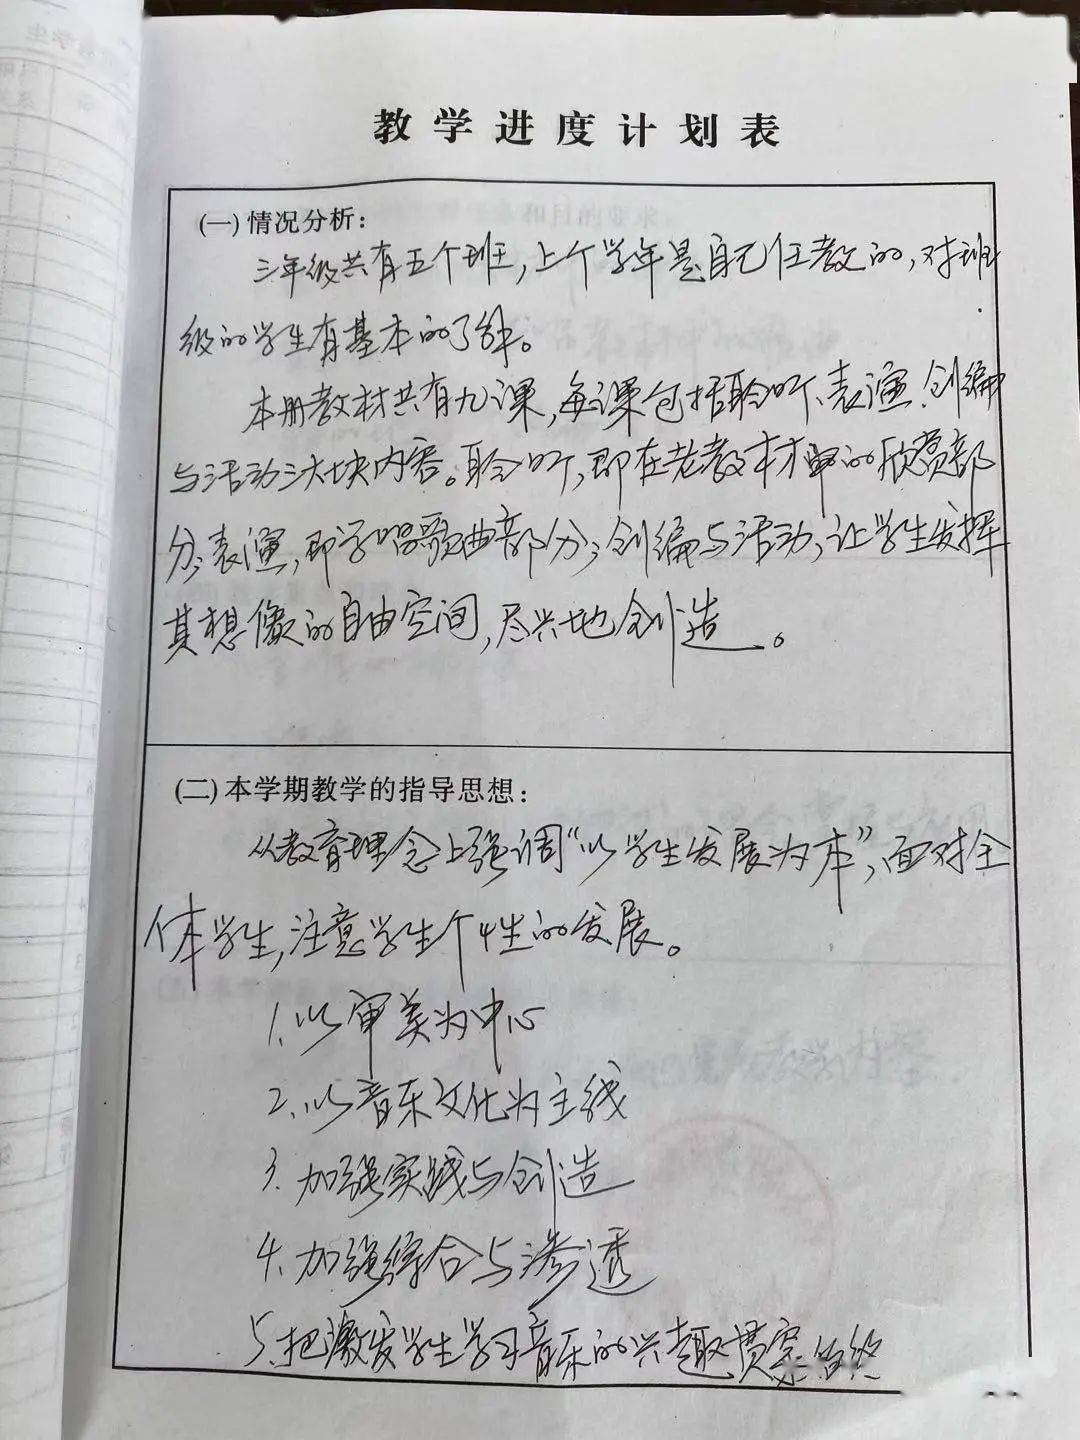 教学进度计划表
(一)情况分析:
三年级共有五个班,上个学年是自己任教的,对班
级的学生有基本的了解。
本册教材共有九课,每课包括聆听、表演、创编
与活动三大块内容。聆听,即在老教材中的欣赏部
分;表演,即学唱歌曲部分;创编与活动,让学生发挥
其想像的自由空间,尽兴地创造。
(二)本学期教学的指导思想:
从教育理念上强调“以学生发展为本”,面对全
体学生,注意学生个性的发展。
1、以审美为中心
2、以音乐文化为主线
3、加强实践与创造
4、加强综合与渗透
5、把激发学生学习音乐的兴趣贯穿始终